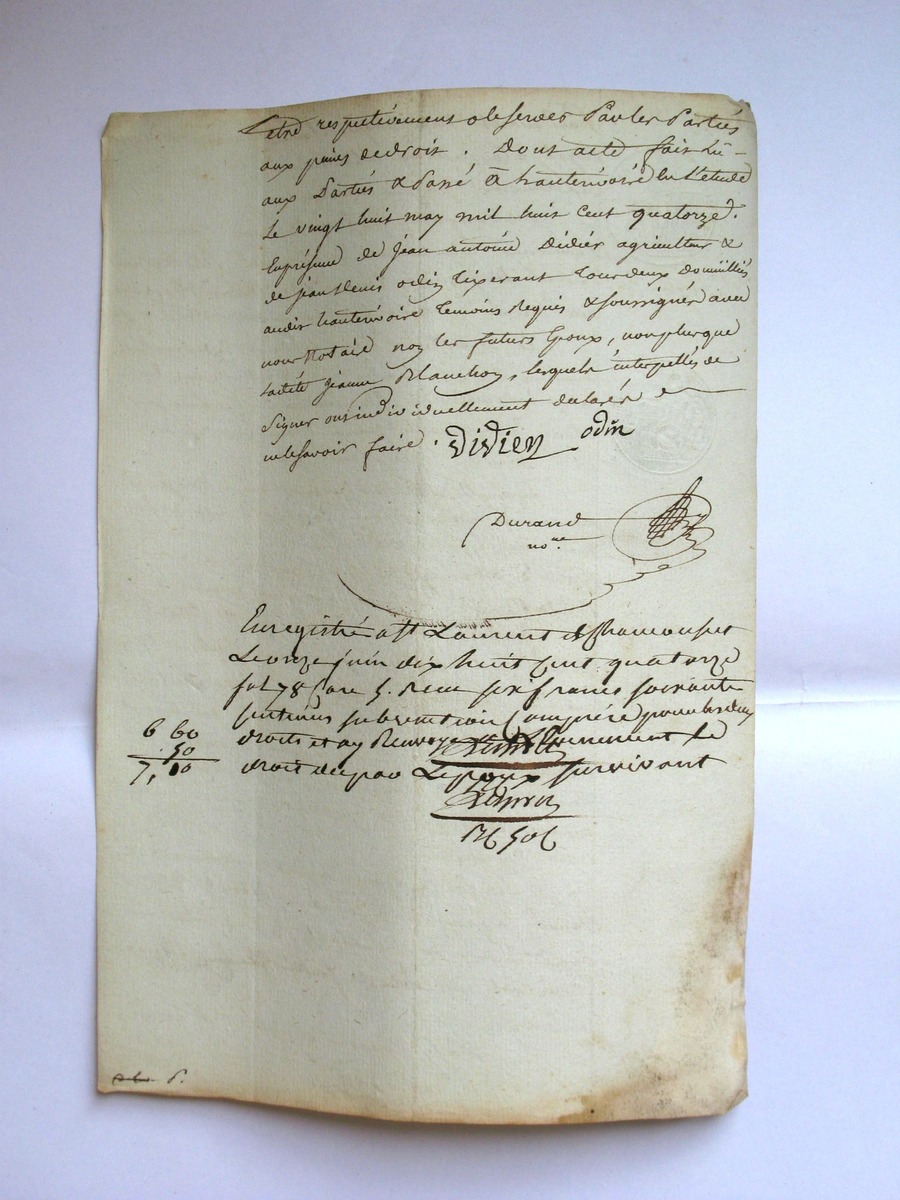 Etre respectivement observés Par les Parties
aux peines de droit. Dont acte fait Lû
aux Parties & Passé à hauterivoire En L'etude
Le vingt huit may mil huit cent quatorze.
En présence de jean antoine Didier agriculteur &
de jean Denis odin tixerant tous deux Domiciliés
audit hauterivoire temoins Requis & soussignés avec
nous Notaire non les futurs Epoux, non plus que
laditte jeanne Blanchon, lesquels interpellés de
signer ont individuellement déclarés
ne le savoir faire.
Didier odin
Durand
nore.
Enregistré a St Laurent de Chamousset
Le onze juin dix huit cent quatorze
fol 78 Case 5. Reçu six francs soixante
centimes subvention Comprise pour les deux
droits et ay Renvoyé le
droit du par L'epoux survivant
6 60
. 50
7, 10